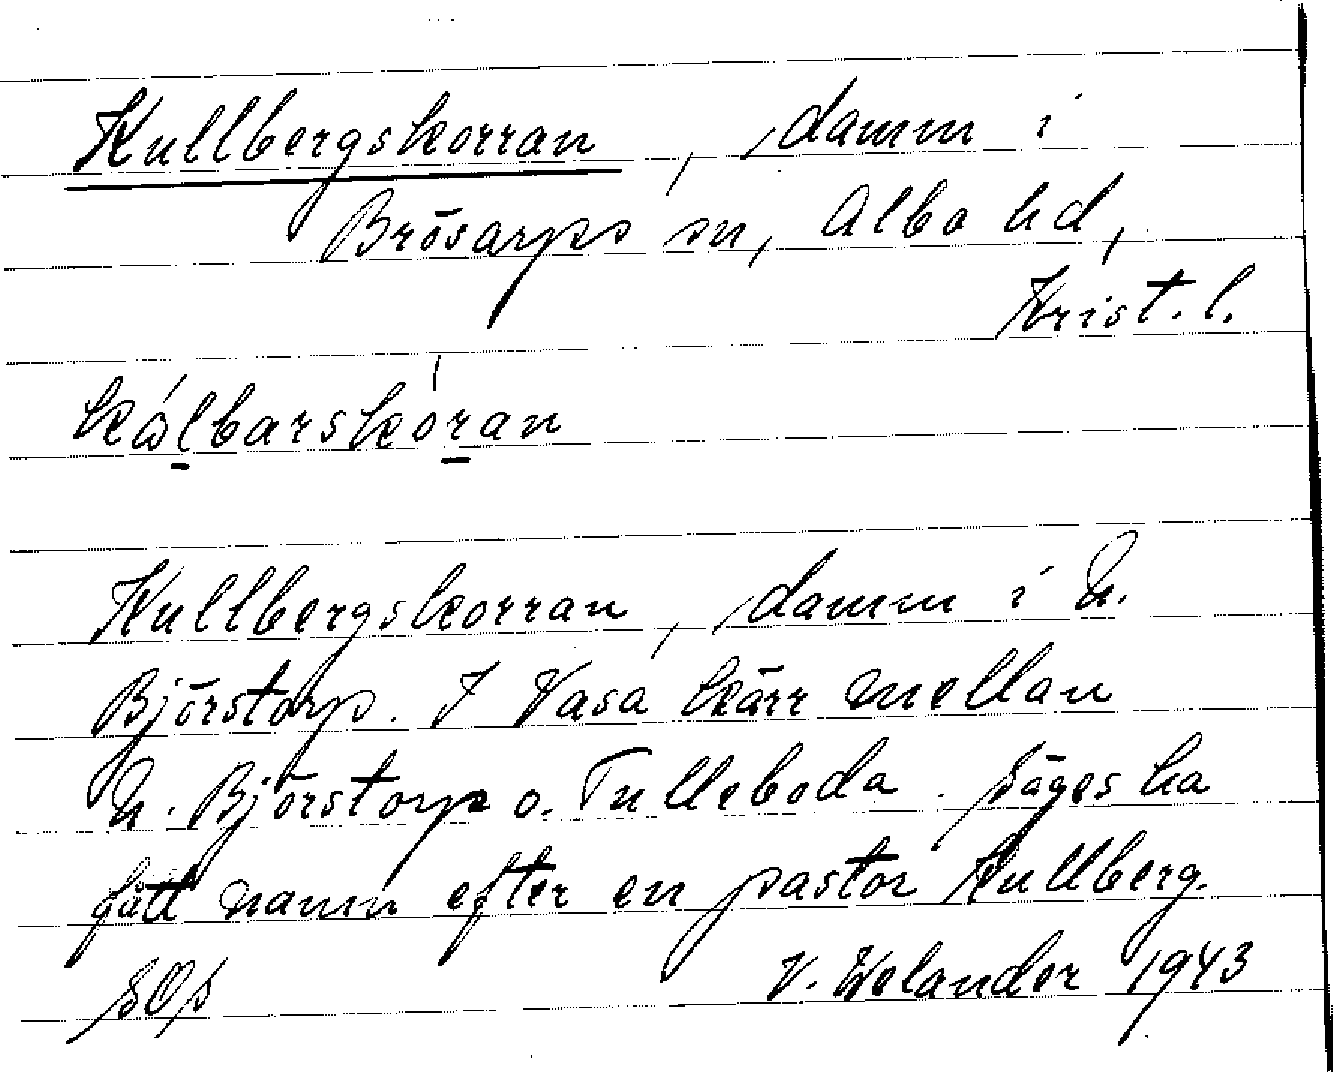 Kullbergskorran, damm i
Brösarps sn, Albo hd,
Krist. l.
kålbarskóran
Kullbergskorran, damm i N.
Björstorp. I Vasa kärr mellan
N. Björstorp o. Tulleboda. Säges ha
fått namn efter en pastor Kullberg.
V. Welander 1943